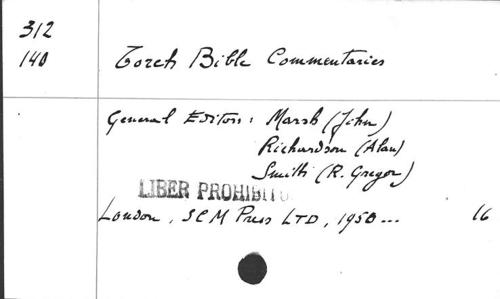 312
140
Torch Bible Commentaries
General Editors: Marsh (John)
Richardson (Alan)
Smith (R. Gregor)
LIBER PROHIBITU
London, SCM Press LTD, 1950... 16